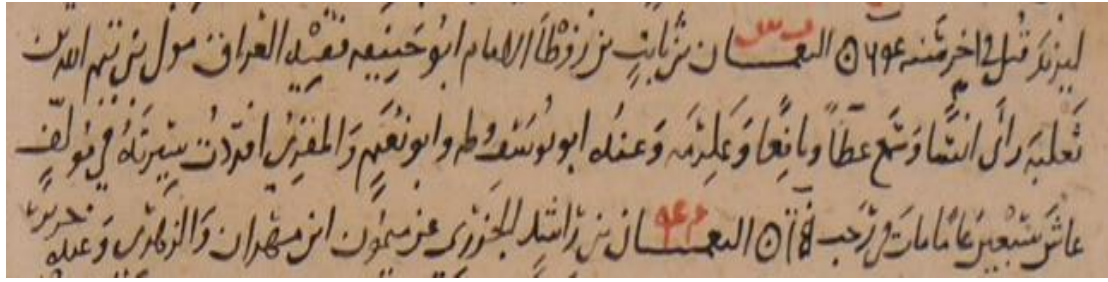 ليزيد قتل في اخر سنة ٦٤ ه النعمان بن ثابت بن زوطا الامام ابو حنيفه فقيه العراق مولى بني تيم الله بن
ثعلبه راى انسا وسمع عطا ونافعا وعكرمه وعنه ابو يوسف وم وابو نعيم والمقري افردت سيرته في مولف
عاش سبعين عاما مات في رجب النعمان بن راشد الجزري عن ميمون ابن مهران والزهري وعنه